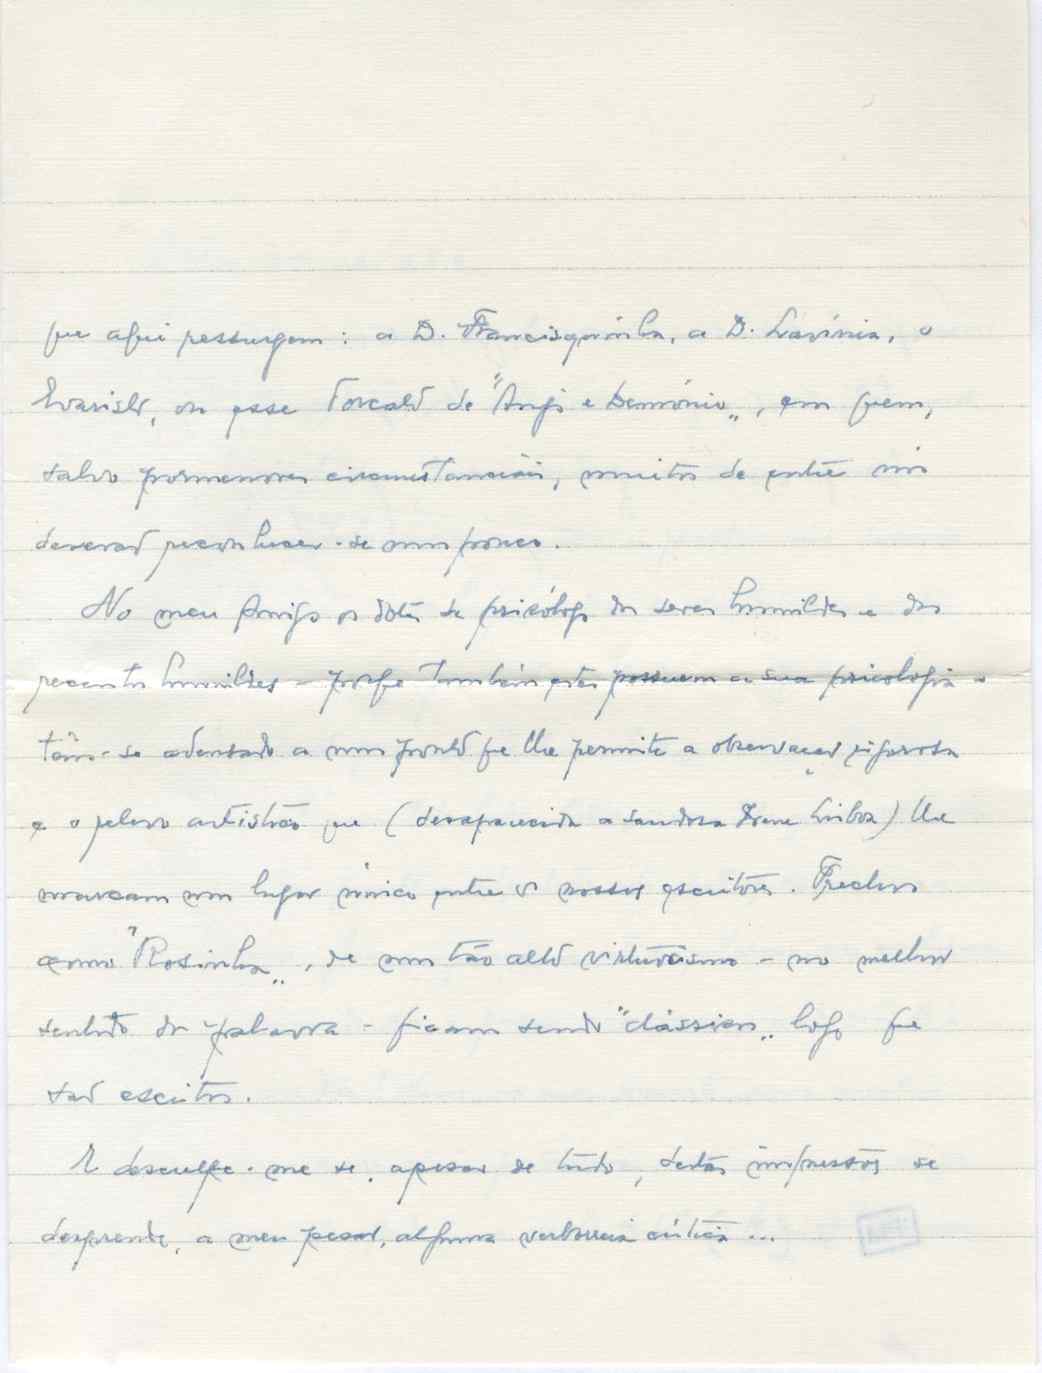 que aqui ressurgem: a D. Francisquinha, a D. Lavínia, o
Evaristo, ou esse Torcato de "Anjo e Demónio", em quem,
salvo pormenores circunstanciais, muitos de entre nós
deverão reconhecer-se um pouco.
No meu Amigo os dotes de psicólogo dos seres humildes e dos
recantos humildes - porque também estes possuem a sua psicologia -
têm-se adensado a um ponto que lhe permite a observação rigorosa
e o relevo artístico que (desaparecida a saudosa Irene Lisboa) lhe
marcam um lugar único entre os nossos escritores. Trechos
como "Rosinha", de um tão alto virtuosismo - no melhor
sentido da palavra - ficam sendo "clássicos" logo que
são escritos.
E desculpe-me se, apesar de tudo, destas impressões se
desprende, a meu pesar, alguma verborreia crítica...